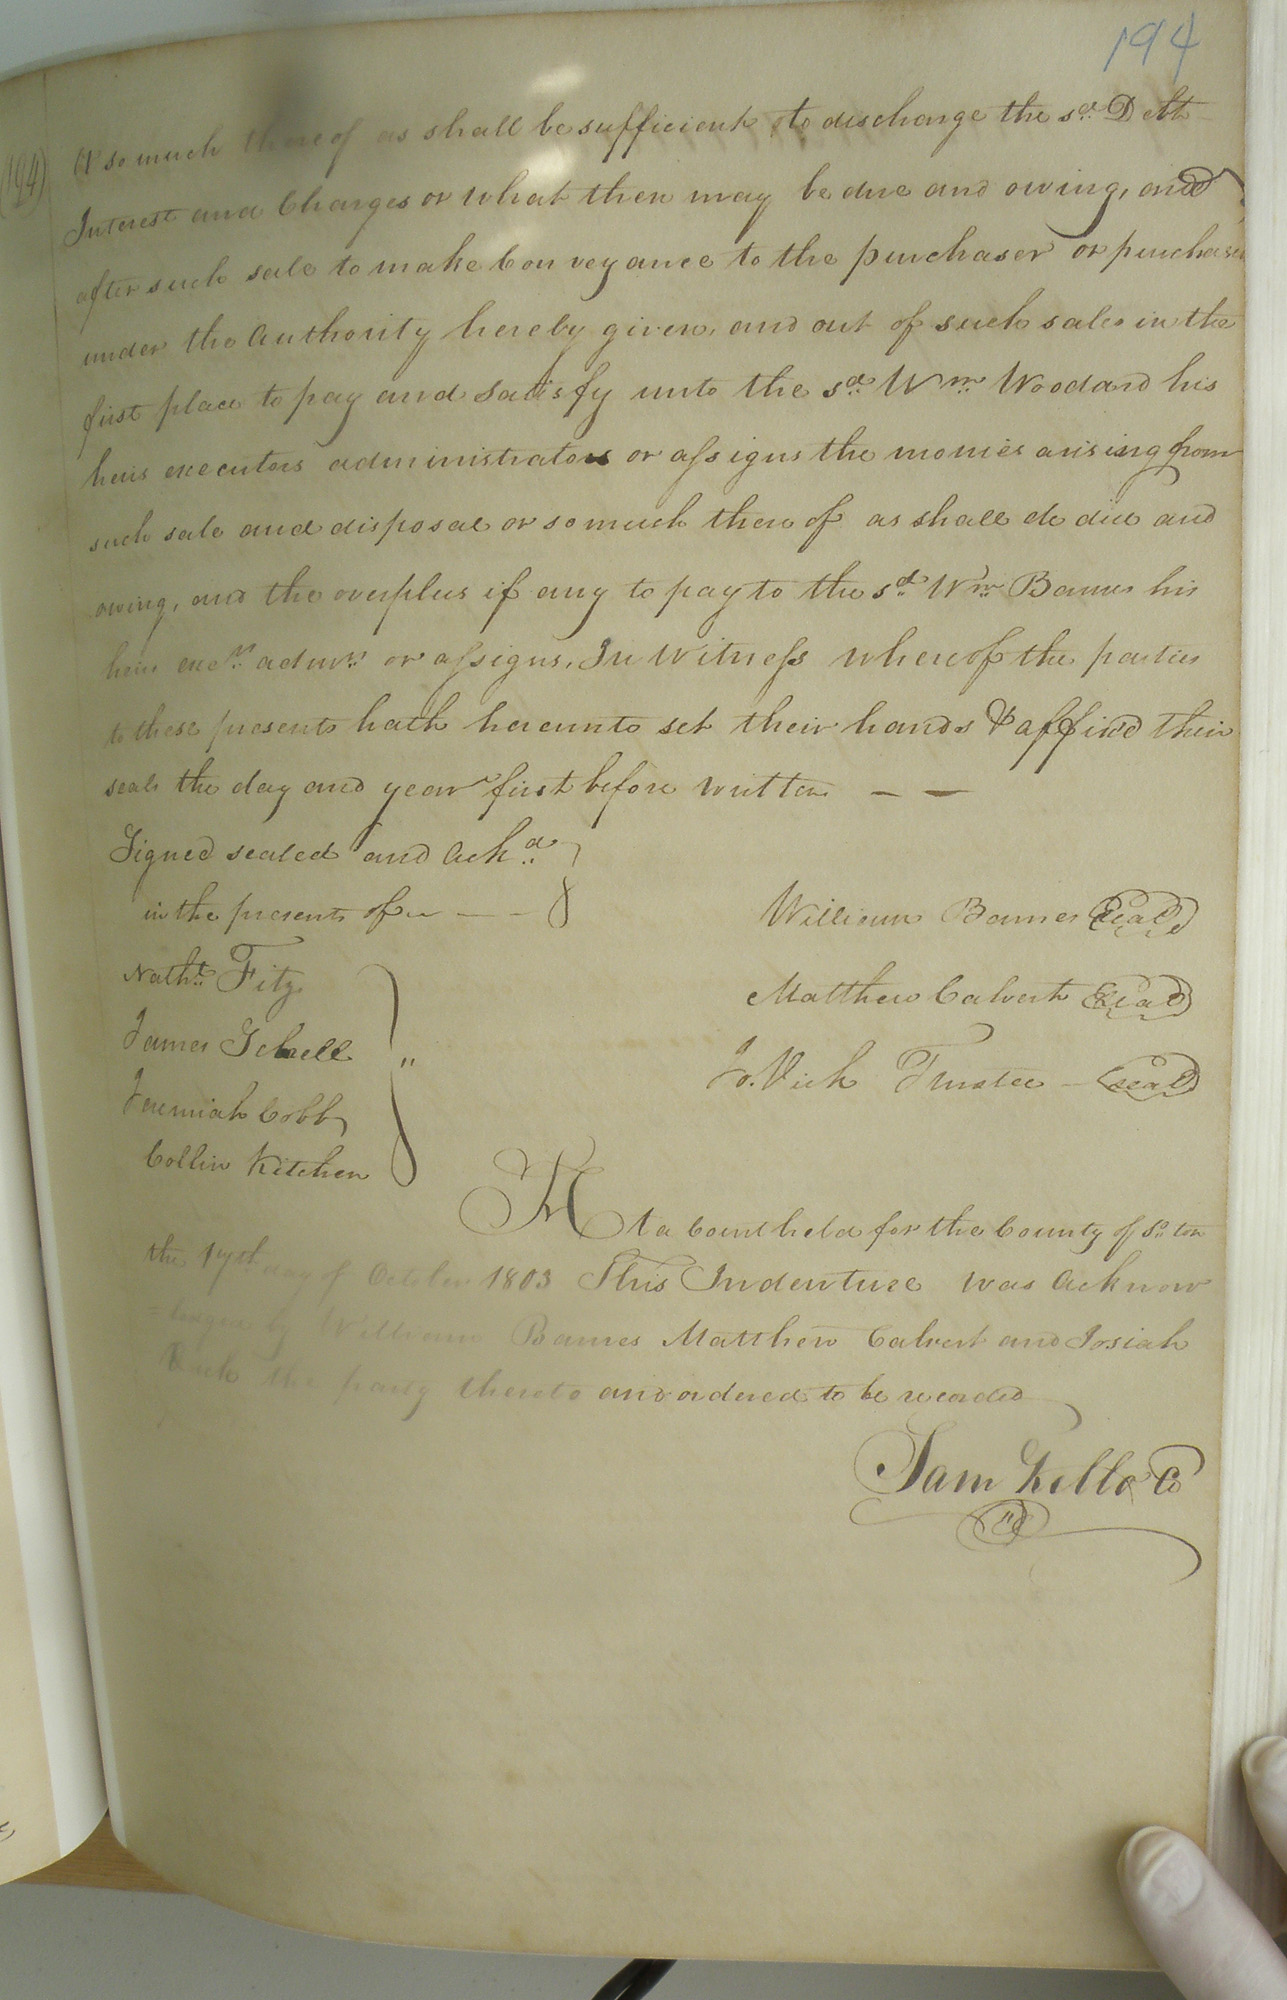 194
(194)
or so much thereof as shall be sufficient to discharge the sd. Debt
Interest and Charges or what then may be due and owing, and
after such sale to make Conveyance to the purchaser or purchasers
under the Authority hereby given, and out of such sales in the
first place to pay and Satisfy unto the sd. Wm. Woodard his
heirs executors administrators or assigns the monies arising from
such sale and disposal or so much thereof as shall de due and
owing, and the overplus if any to pay to the sd. Wm. Barnes his
heirs exers. admrs. or assigns, In Witness whereof the parties
to these presents hath hereunto set their hands & affixd their
seals the day and year first before written — —
Signed sealed and Ackd.
in the presents of — —
William Barnes Seal
Nathl. Fitz
Matthew Calvert Seal
James Schell
Jo. Vick Trustee - seal
Jeremiah Cobb
Collin Kitchen
At a Court held for the County of So. ton
the 17th day of October 1803 This Indenture was Acknow
= ledged by William Barnes Matthew Calvert and Josiah
Vick the party thereto and ordered to be recorded
Sam Kello Co